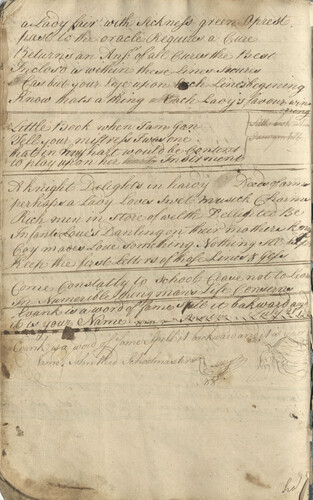 a Lady fair with Sickness green Oprest
past to the oracle Requires a Cure
Returns an Ansr of all Cures the Best
Inclosd is within these Lines Secure
Cast but your Eye upon Each Lines begining
Know thats a thing Each Lady's favour
Little Book when I am gon
Tell your mistress I was one
that in my hart would be Content
to play upon her Instrement
A knight Delights in hardy Deeds of arms
perhaps a Lady Loves Sweet musick Charms
Rich men in Store of welth Delighted Be
Infants Love Danling on their mothers knee
Coy maids Love Something Nothing Ill
Keep the first Letters of these Lines &
Come Constantly to School Cease not to
Knank is a word of fame Spell it backward and
it is your Name
is a word of fame Spell it backward and
Schoolmaster